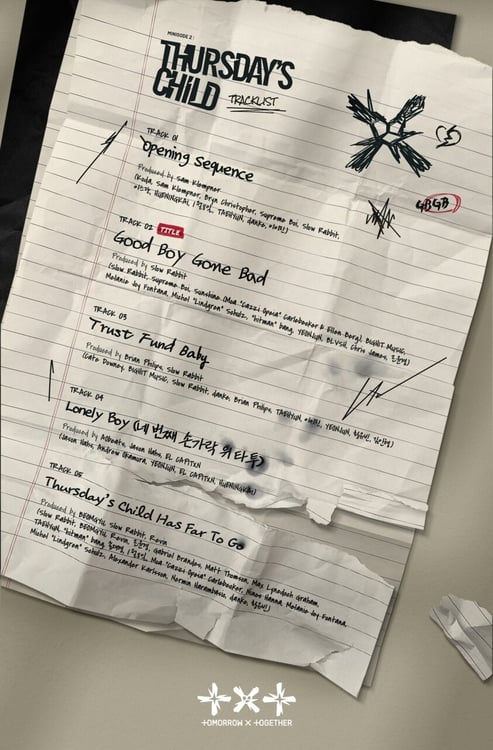 MINISODE 2 :
THURSDAY'S
CHILD
TRACKLIST
GBGB
TRACK 01
Opening Sequence
Produced by Sam Klempner
(Koda, Sam Klempner, Bryn Christopher, Supreme Boi, Slow Rabbit,
이스란, HUENINGKAI, TAEHYUN, danke,
TRACK 02 TITLE
Good Boy Gone Bad
Produced by Slow Rabbit
(Slow Rabbit, Supreme Boi, Sunshine (Moa "Cazzi Opeia" Carlebecker & Ellen Berg), BIGHIT MUSIC,
Melanie Joy Fontana, Michel "Lindgren" Schulz, "hitman" bang, YEONJUN, BLVSH, Chris James,
TRACK 03
Trust Fund Baby
Produced by Brian Phillips, Slow Rabbit
(Cate Downey, BIGHIT MUSIC, Slow Rabbit, danke, Brian Phillips, TAEHYUN, YEONJUN,
TRACK 04
Lonely Boy (네 번째 손가락 위 타투)
Produced by Jason Hahs, EL CAPITXN
(Jason Hahs, Andrew Okamura, YEONJUN, EL CAPITXN, HUENINGKAI)
TRACK 05
Thursday's Child Has Far To Go
Produced by BEOMGYU, Slow Rabbit, Revin
(Slow Rabbit, BEOMGYU, Revin, Gabriel Brandes, Matt Thomson, Max Lynedoch Graham,
TAEHYUN, "hitman" bang, Moa "Cazzi Opeia" Carlebecker, Ninos Hanna, Melanie Joy Fontana,
Michel "Lindgren" Schulz, Alexander Karlsson, Nermin Harambasic, danke,
TOMORROW X TOGETHER